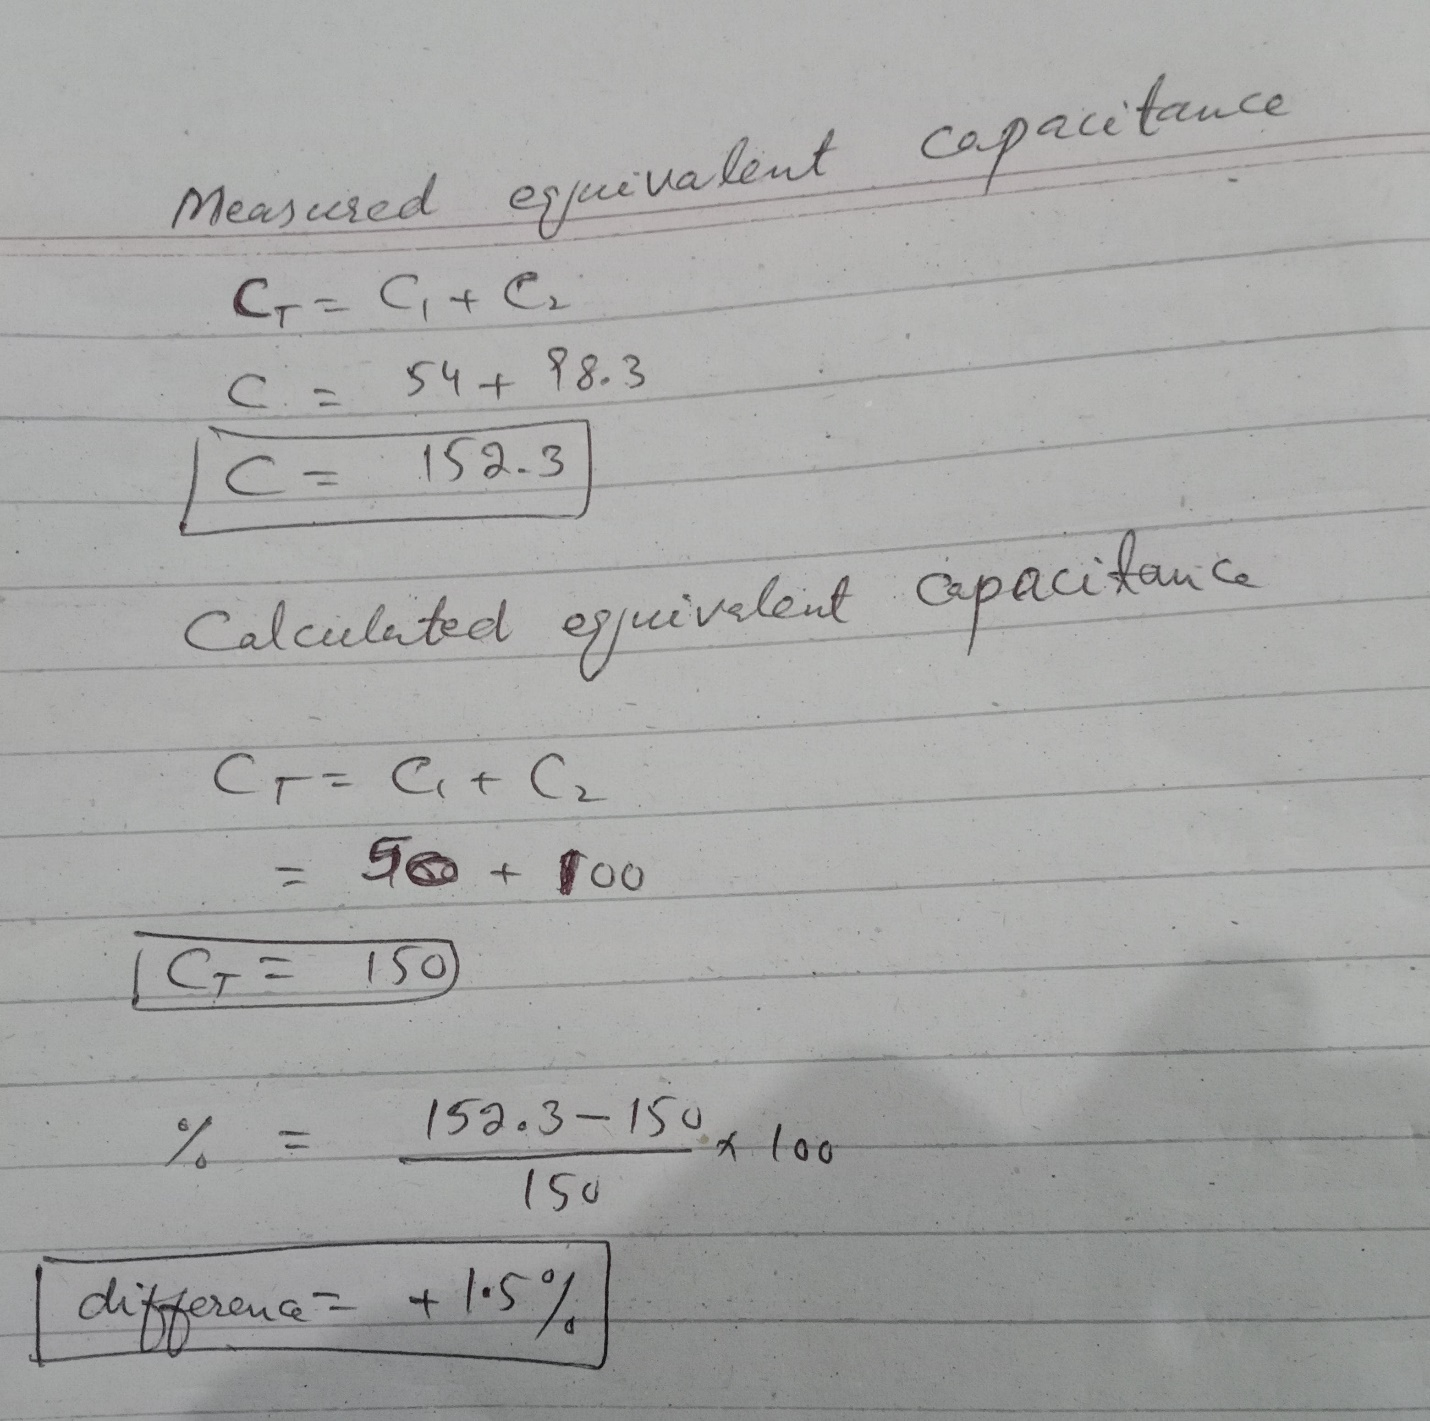 Measured equivalent capacitance
C_T = C_1 + C_2
C = 54 + 98.3
C = 152.3
Calculated equivalent capacitance
C_T = C_1 + C_2
= 50 + 100
C_T = 150
% = (152.3 - 150) / 150 × 100
difference = + 1.5%